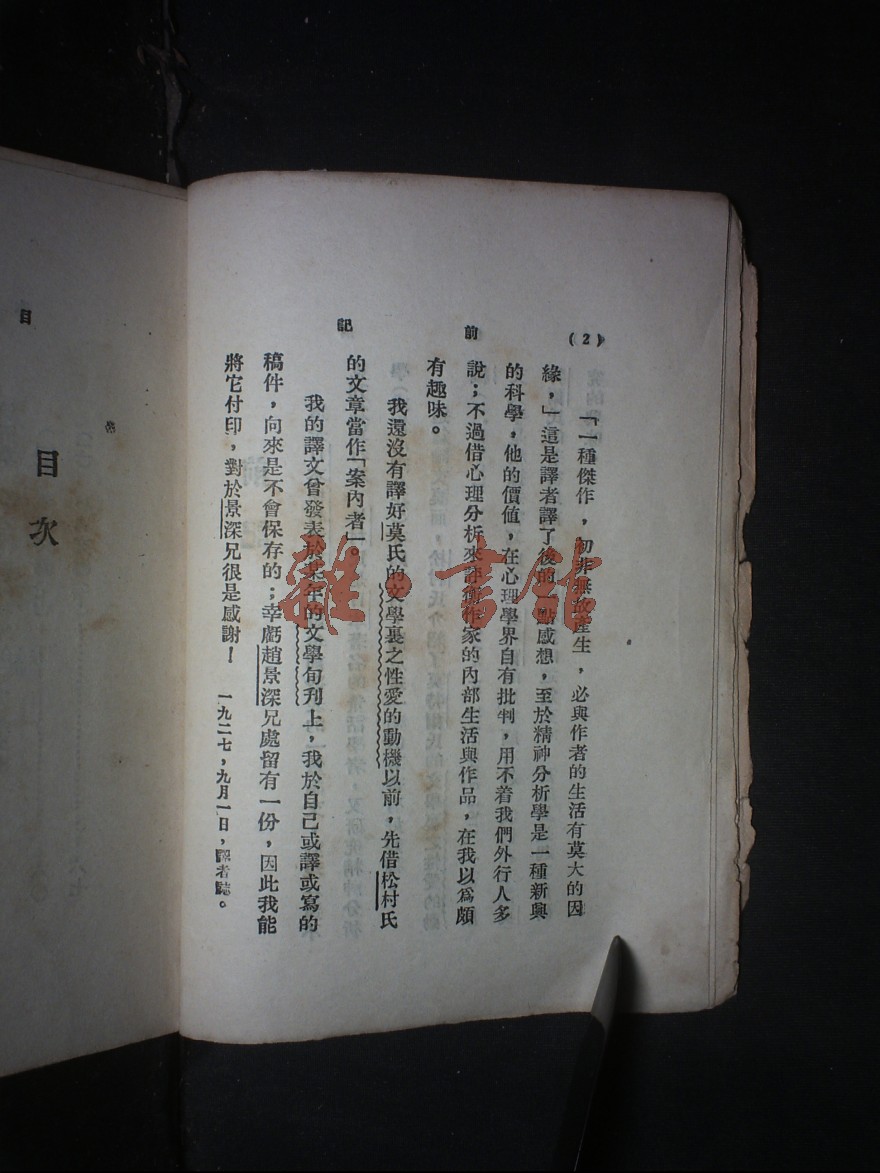 (2)
前
記
「一種傑作，初非無故產生，必與作者的生活有莫大的因
緣，」這是譯者譯了後的一點感想，至於精神分析學是一種新興
的科學，他的價值，在心理學界自有批判，用不着我們外行人多
說；不過借心理分析來評衡作家的內部生活與作品，在我以爲頗
有趣味。
我還沒有譯好莫氏的文學裏之性愛的動機以前，先借松村氏
的文章當作「案內者」。
我的譯文曾發表於某年的文學旬刊上，我於自己或譯或寫的
稿件，向來是不會保存的；幸虧趙景深兄處留有一份，因此我能
將它付印，對於景深兄很是感謝！
一九二七，九月一日，譯者誌。
目
目次
雜·書館